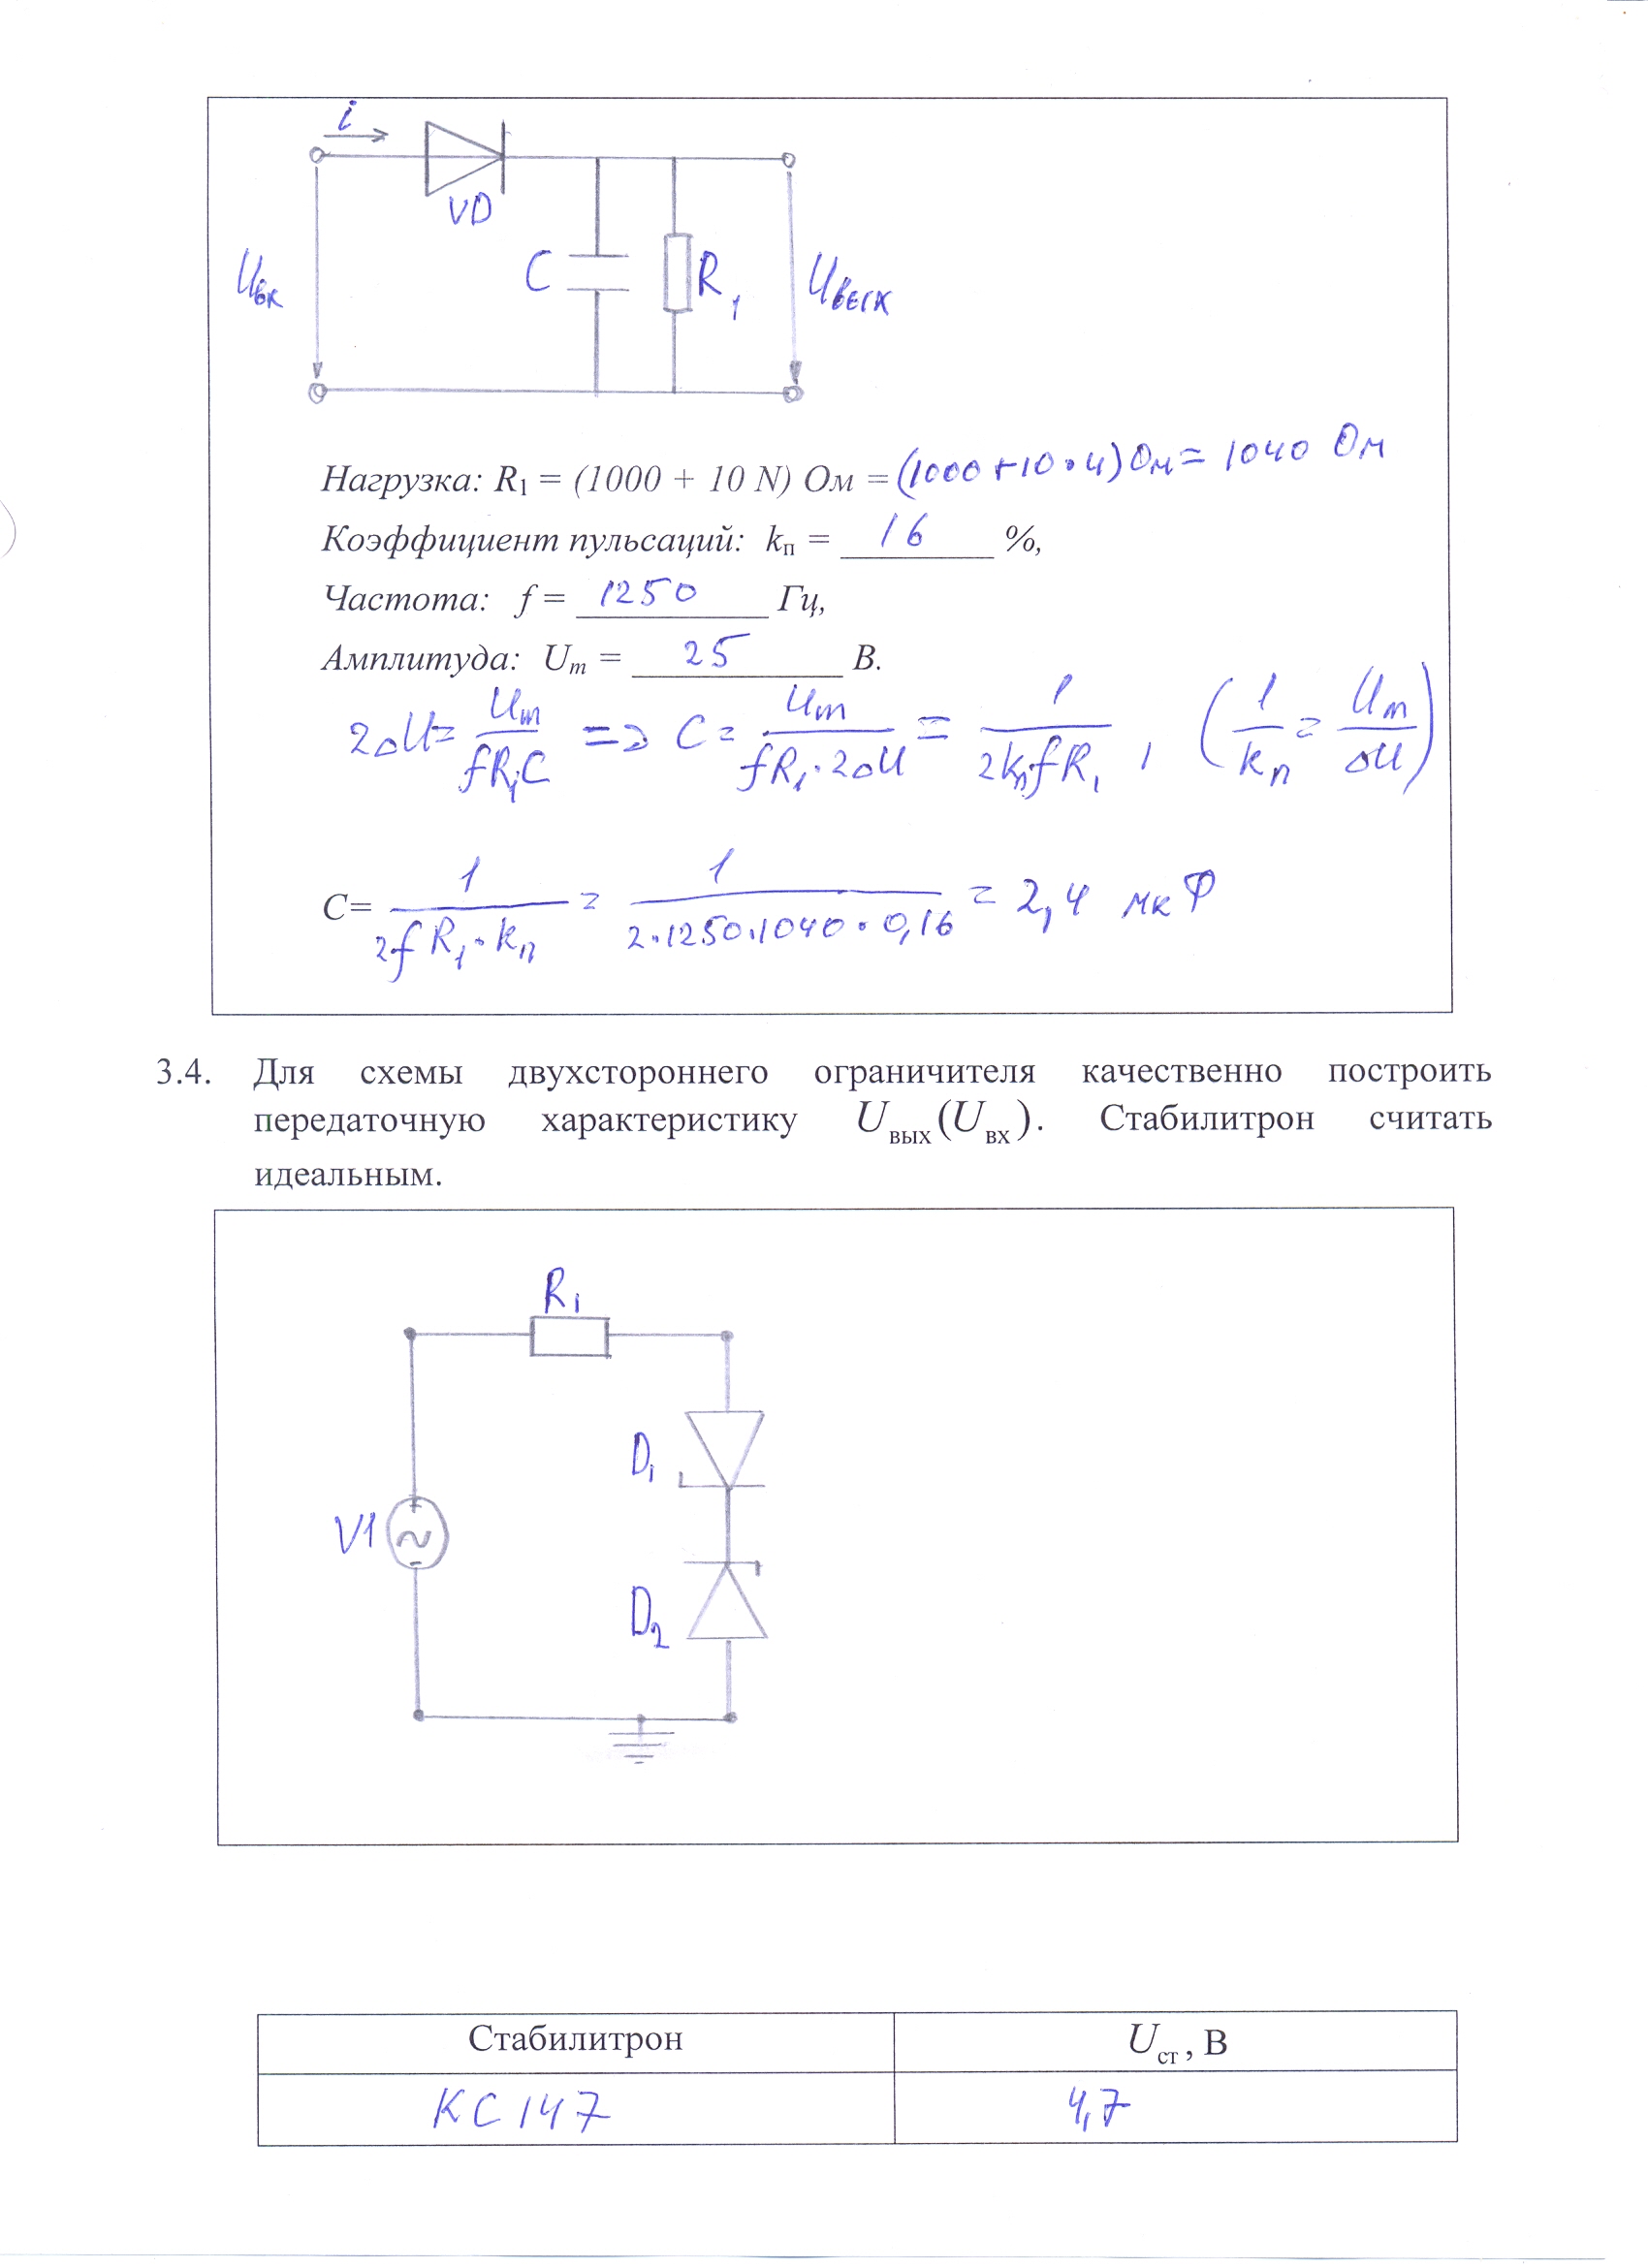 i
VD
Uвх
C
R₁
Uвых
Нагрузка: R₁ = (1000 + 10 N) Ом = (1000+10·4) Ом = 1040 Ом
Коэффициент пульсаций: kп = 16 %,
Частота: f = 1250 Гц,
Амплитуда: Uₘ = 25 В.
2ΔU = Uₘ/(fR₁C) => C = Uₘ/(fR₁·2ΔU) = 1/(2kп fR₁) , (1/kп = Uₘ/ΔU)
C = 1/(2fR₁·kп) = 1/(2·1250·1040·0,16) = 2,4 мкФ
3.4. Для схемы двухстороннего ограничителя качественно построить
передаточную характеристику Uвых(Uвх). Стабилитрон считать
идеальным.
R₁
D₁
V1
+
~
-
D₂
Стабилитрон Uст, В
КС147 4,7